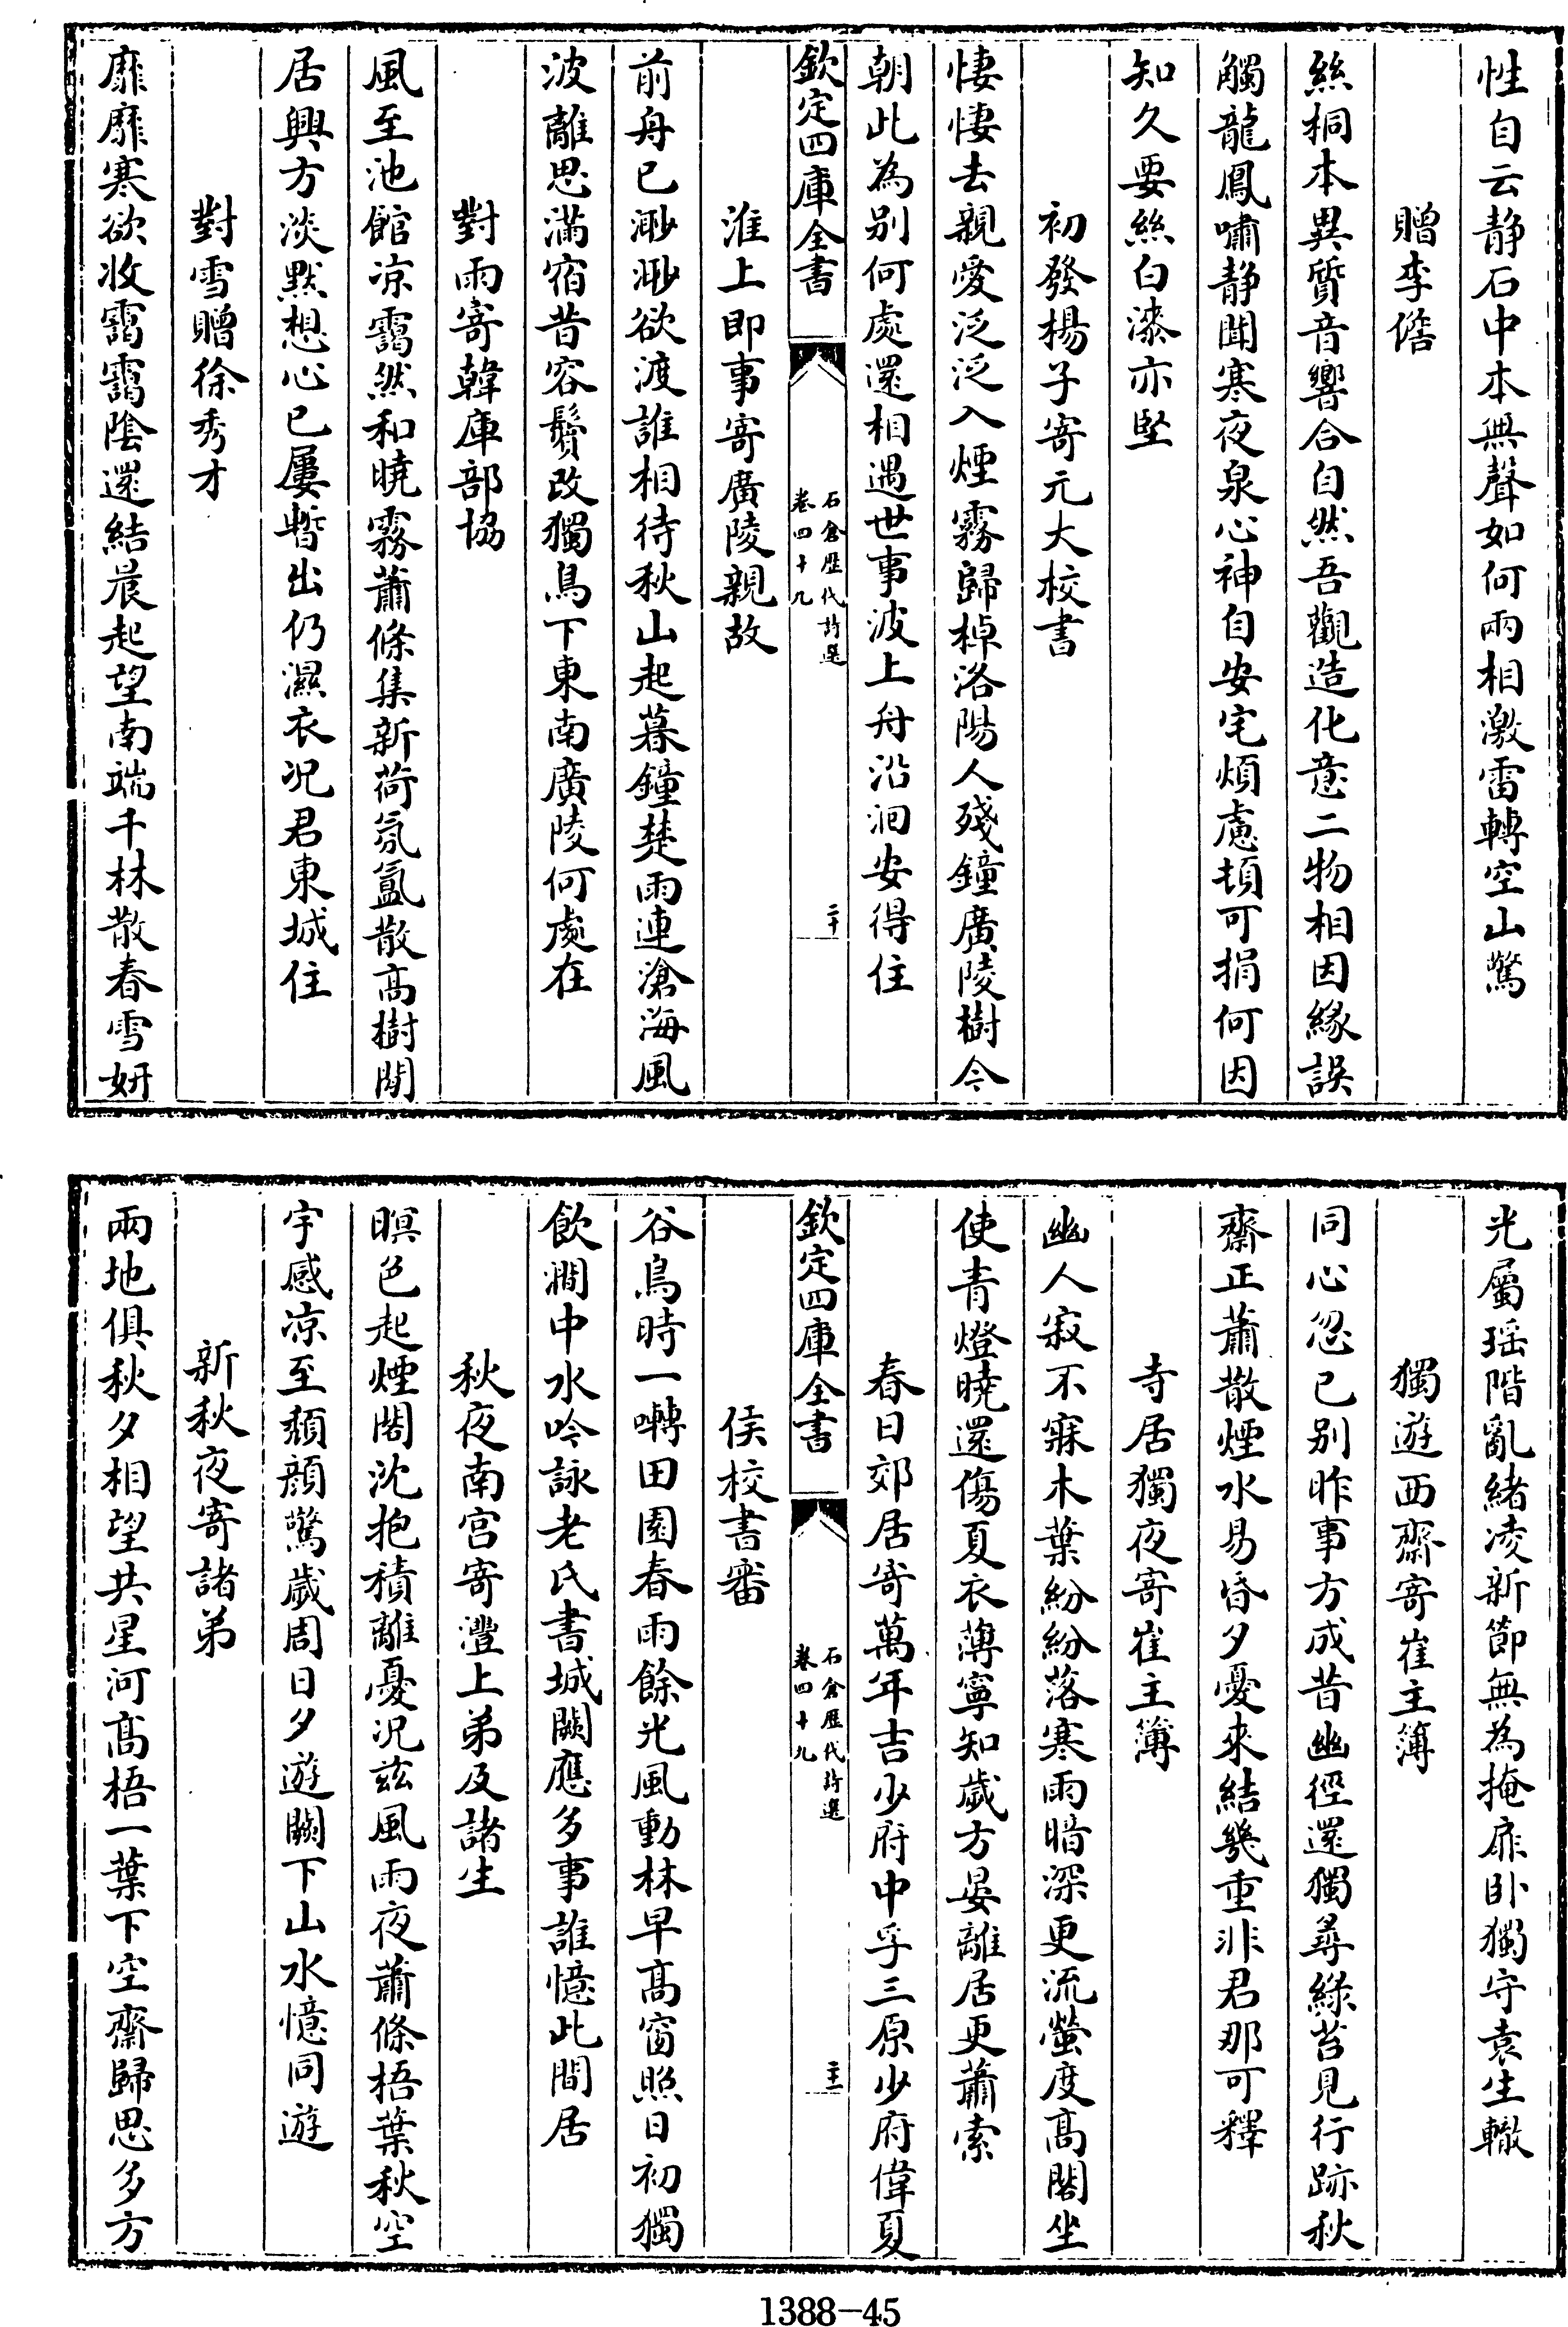 性自云静石中本無聲如何兩相激雷轉空山驚
贈李儋
絲桐本異質音響合自然吾觀造化意二物相因緣誤
觸龍鳳嘯静聞寒夜泉心神自安宅煩慮頓可捐何因
知久要絲白漆亦堅
初發揚子寄元大校書
悽悽去親愛泛泛入煙霧歸棹洛陽人殘鐘廣陵樹今
朝此為别何處還相遇世事波上舟沿洄安得住
欽定四庫全書
石倉歷代詩選
卷四十九
二十
淮上即事寄廣陵親故
前舟已渺渺欲渡誰相待秋山起暮鐘楚雨連滄海風
波離思滿宿昔容鬢改獨鳥下東南廣陵何處在
對雨寄韓庫部協
風至池館凉靄然和曉霧蕭條集新荷氛氲散高樹閒
居興方淡默想心已屢暫出仍濕衣况君東城住
對雪贈徐秀才
靡靡寒欲收靄靄陰還結晨起望南端千林散春雪妍
光屬瑶階亂緒凌新節無為掩扉卧獨守袁生轍
獨遊西齋寄崔主簿
同心忽已别昨事方成昔幽徑還獨尋綠苔見行跡秋
齋正蕭散煙水易昏夕憂來結幾重非君那可釋
寺居獨夜寄崔主簿
幽人寂不寐木葉紛紛落寒雨暗深更流螢度高閣坐
使青燈曉還傷夏衣薄寧知歲方晏離居更蕭索
春日郊居寄萬年吉少府中孚三原少府偉夏
欽定四庫全書
石倉歷代詩選
卷四十九
二十一
侯校書審
谷鳥時一囀田園春雨餘光風動林早高窗照日初獨
飲澗中水吟詠老氏書城闕應多事誰憶此閒居
秋夜南宫寄灃上弟及諸生
暝色起煙閣沈抱積離憂况兹風雨夜蕭條梧葉秋空
宇感凉至頽顔驚歲周日夕遊闕下山水憶同遊
新秋夜寄諸弟
兩地俱秋夕相望共星河高梧一葉下空齋歸思多方
1388-45